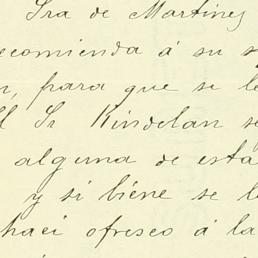 Sra de Martinez
ecomienda á su s
n, para que se le
El Sr Kindelan se
alguna de esta
y si biene se l
haci ofresco á la